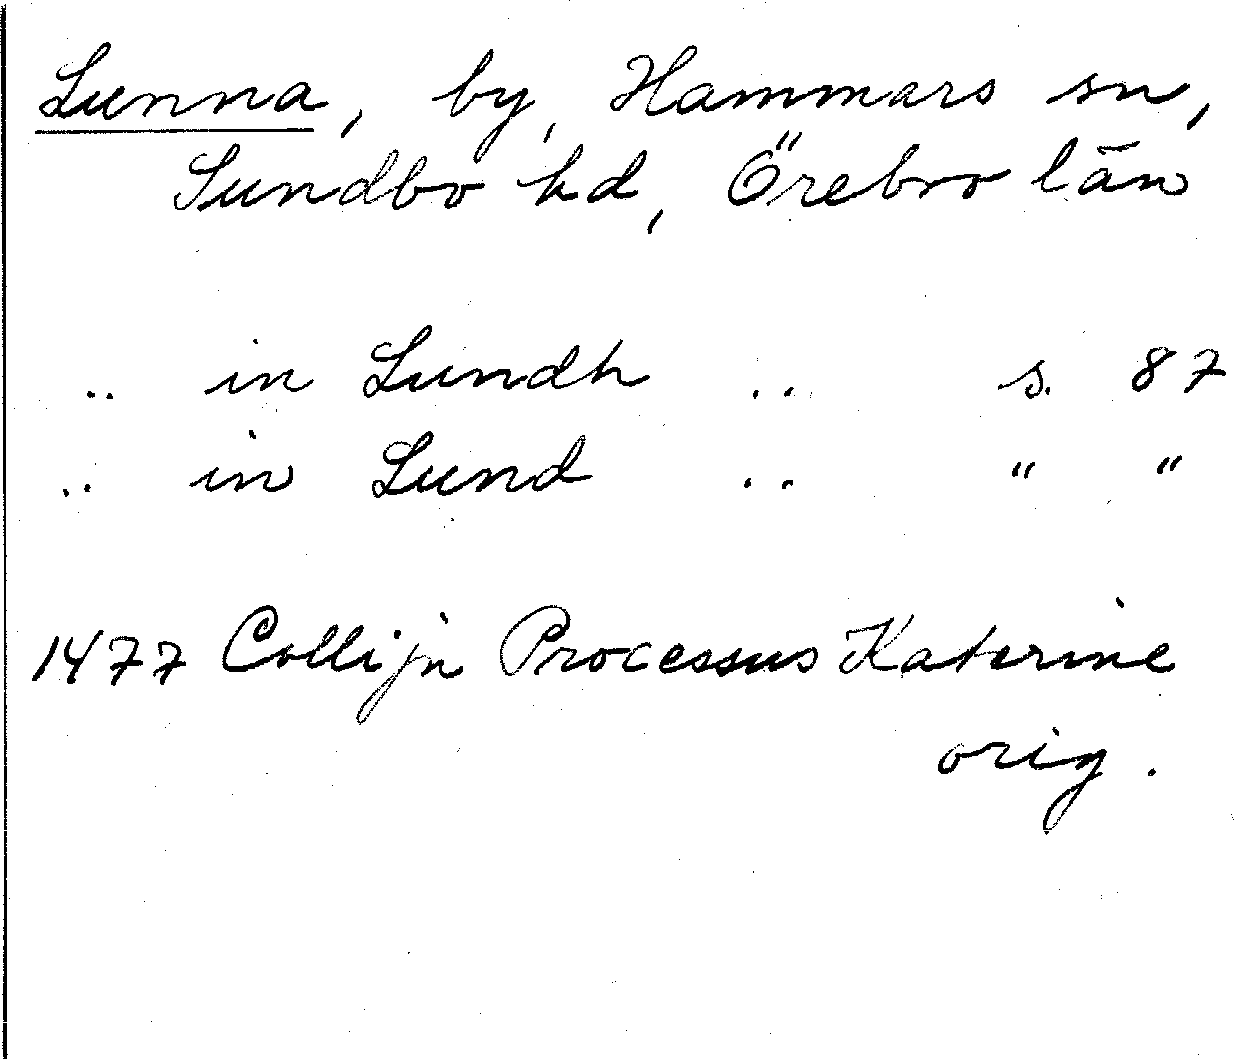 Lunna, by, Hammars sn,
Sundbo hd, Örebro län
.. in Lundh .. s. 87
.. in Lund .. " "
1477 Collijn Processus Katerine
orig.